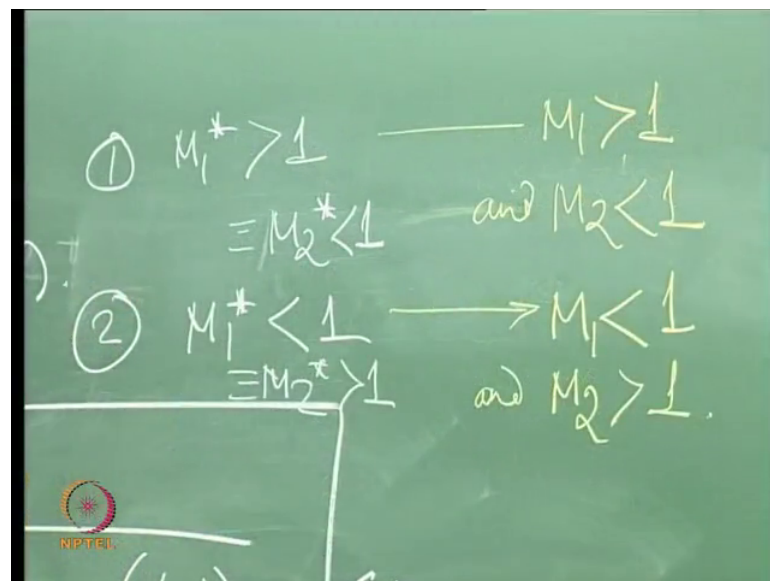 ① M₁* > 1 —— M₁ > 1
≡ M₂* < 1 and M₂ < 1
).
② M₁* < 1 ⟶ M₁ < 1
≡ M₂* > 1 and M₂ > 1.
NPTEL